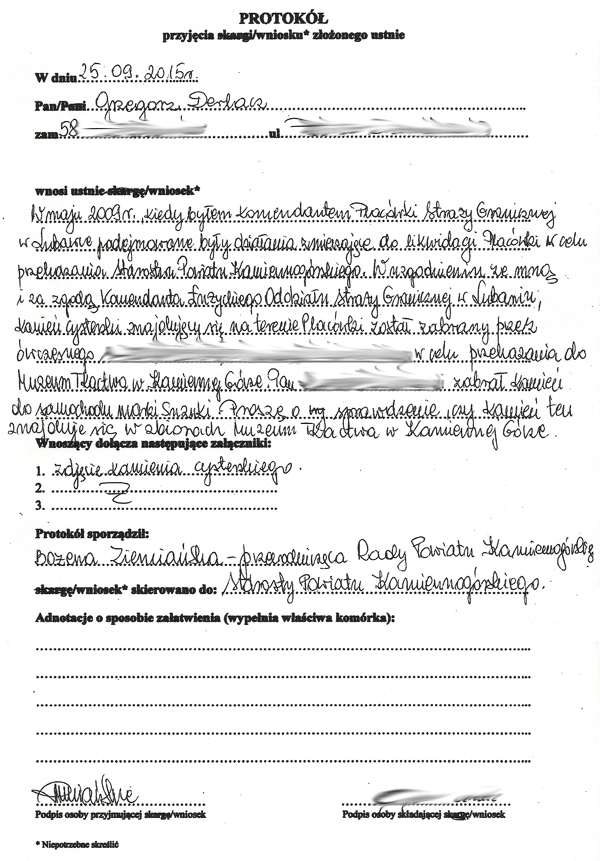 PROTOKÓŁ
przyjęcia skargi/wniosku* złożonego ustnie
W dniu 25.09.2015r.
Pan/Pani Grzegorz Derlacz
zam. 58 ul
wnosi ustnie skargę/wniosek*
W maju 2009r. kiedy byłem komendantem Placówki Straży Granicznej
w Lubawce podejmowane były działania zmierzające do likwidacji Placówki w celu
przekazania Starostwa Powiatu Kamiennogórskiego. W uzgodnieniu ze mną
i za zgodą Komendanta Łużyckiego Oddziału Straży Granicznej w Lubaniu,
kamień cysterski znajdujący się na terenie Placówki został zabrany przez
ówczesnego w celu przekazania do
Muzeum Tkactwa w Kamiennej Górze. Pan zabrał kamień
do samochodu marki Suzuki. Proszę o sprawdzenie czy kamień ten
znajduje się w zbiorach Muzeum Tkactwa w Kamiennej Górze.
Wnoszący dołącza następujące załączniki:
1. zdjęcie kamienia cysterskiego.
2.
3.
Protokół sporządził:
Bożena Ziemiańska – przewodnicząca Rady Powiatu Kamiennogórskiego
skargę/wniosek* skierowano do: Starosty Powiatu Kamiennogórskiego.
Adnotacje o sposobie załatwienia (wypełnia właściwa komórka):
Podpis osoby przyjmującej skargę/wniosek Podpis osoby składającej skargę/wniosek
* Niepotrzebne skreślić